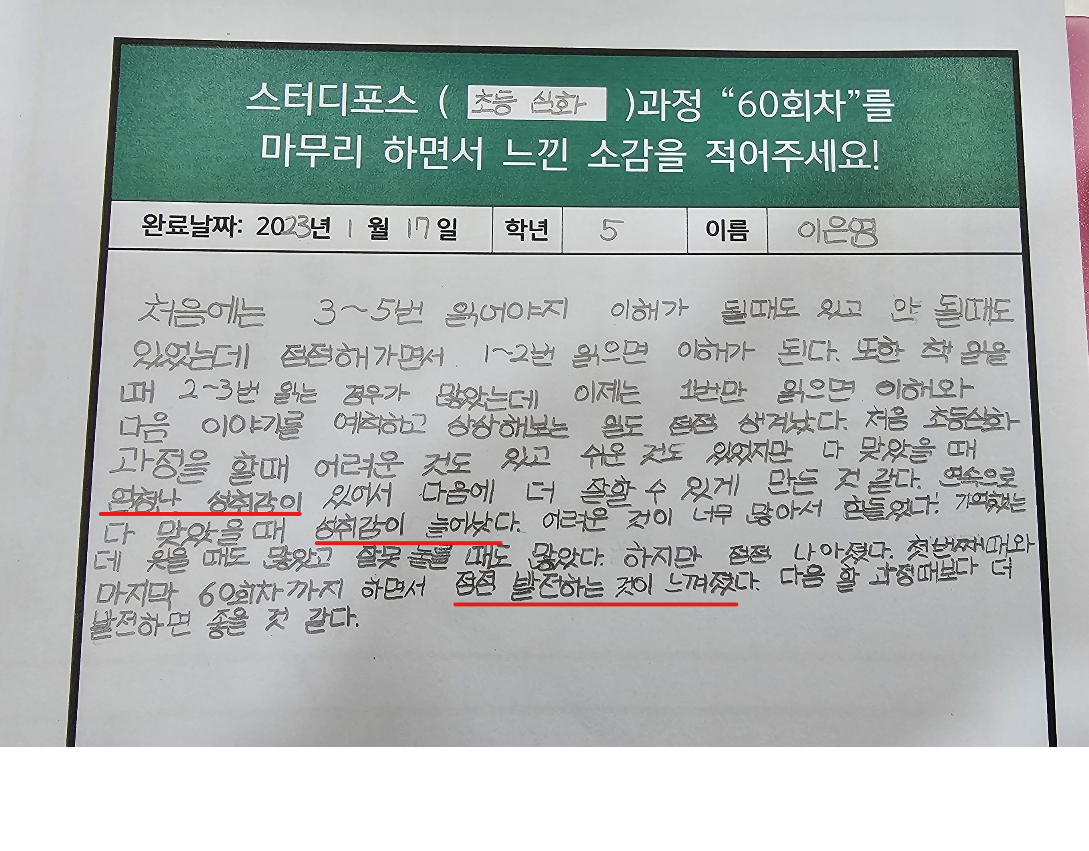 스터디포스 ( 초등 심화 )과정 “60회차”를
마무리 하면서 느낀 소감을 적어주세요!
완료날짜: 2023년 1월 17일 학년 5 이름 이은영
처음에는 3~5번 읽어야지 이해가 될때도 있고 안 될때도
있었는데 점점해가면서 1~2번 읽으면 이해가 된다. 또한 책 읽을
때 2~3번 읽는 경우가 많았는데 이제는 1번만 읽으면 이해와
다음 이야기를 예측하고 상상해보는 일도 점점 생겨났다. 처음 초등심화
과정을 할때 어려운 것도 있고 쉬운 것도 있었지만 다 맞았을 때
엄청난 성취감이 있어서 다음에 더 잘할 수 있게 만든 것 같다. 연속으로
다 맞았을 때 성취감이 늘어났다. 어려운 것이 너무 많아서 힘들었다. 기억했는
데 못을 때도 많았고 잘못 눌를 때도 많았다. 하지만 점점 나아졌다. 첫번째때와
마지막 60회차까지 하면서 점점 발전하는 것이 느껴졌다. 다음 할 과정때보다 더
발전하면 좋을 것 같다.